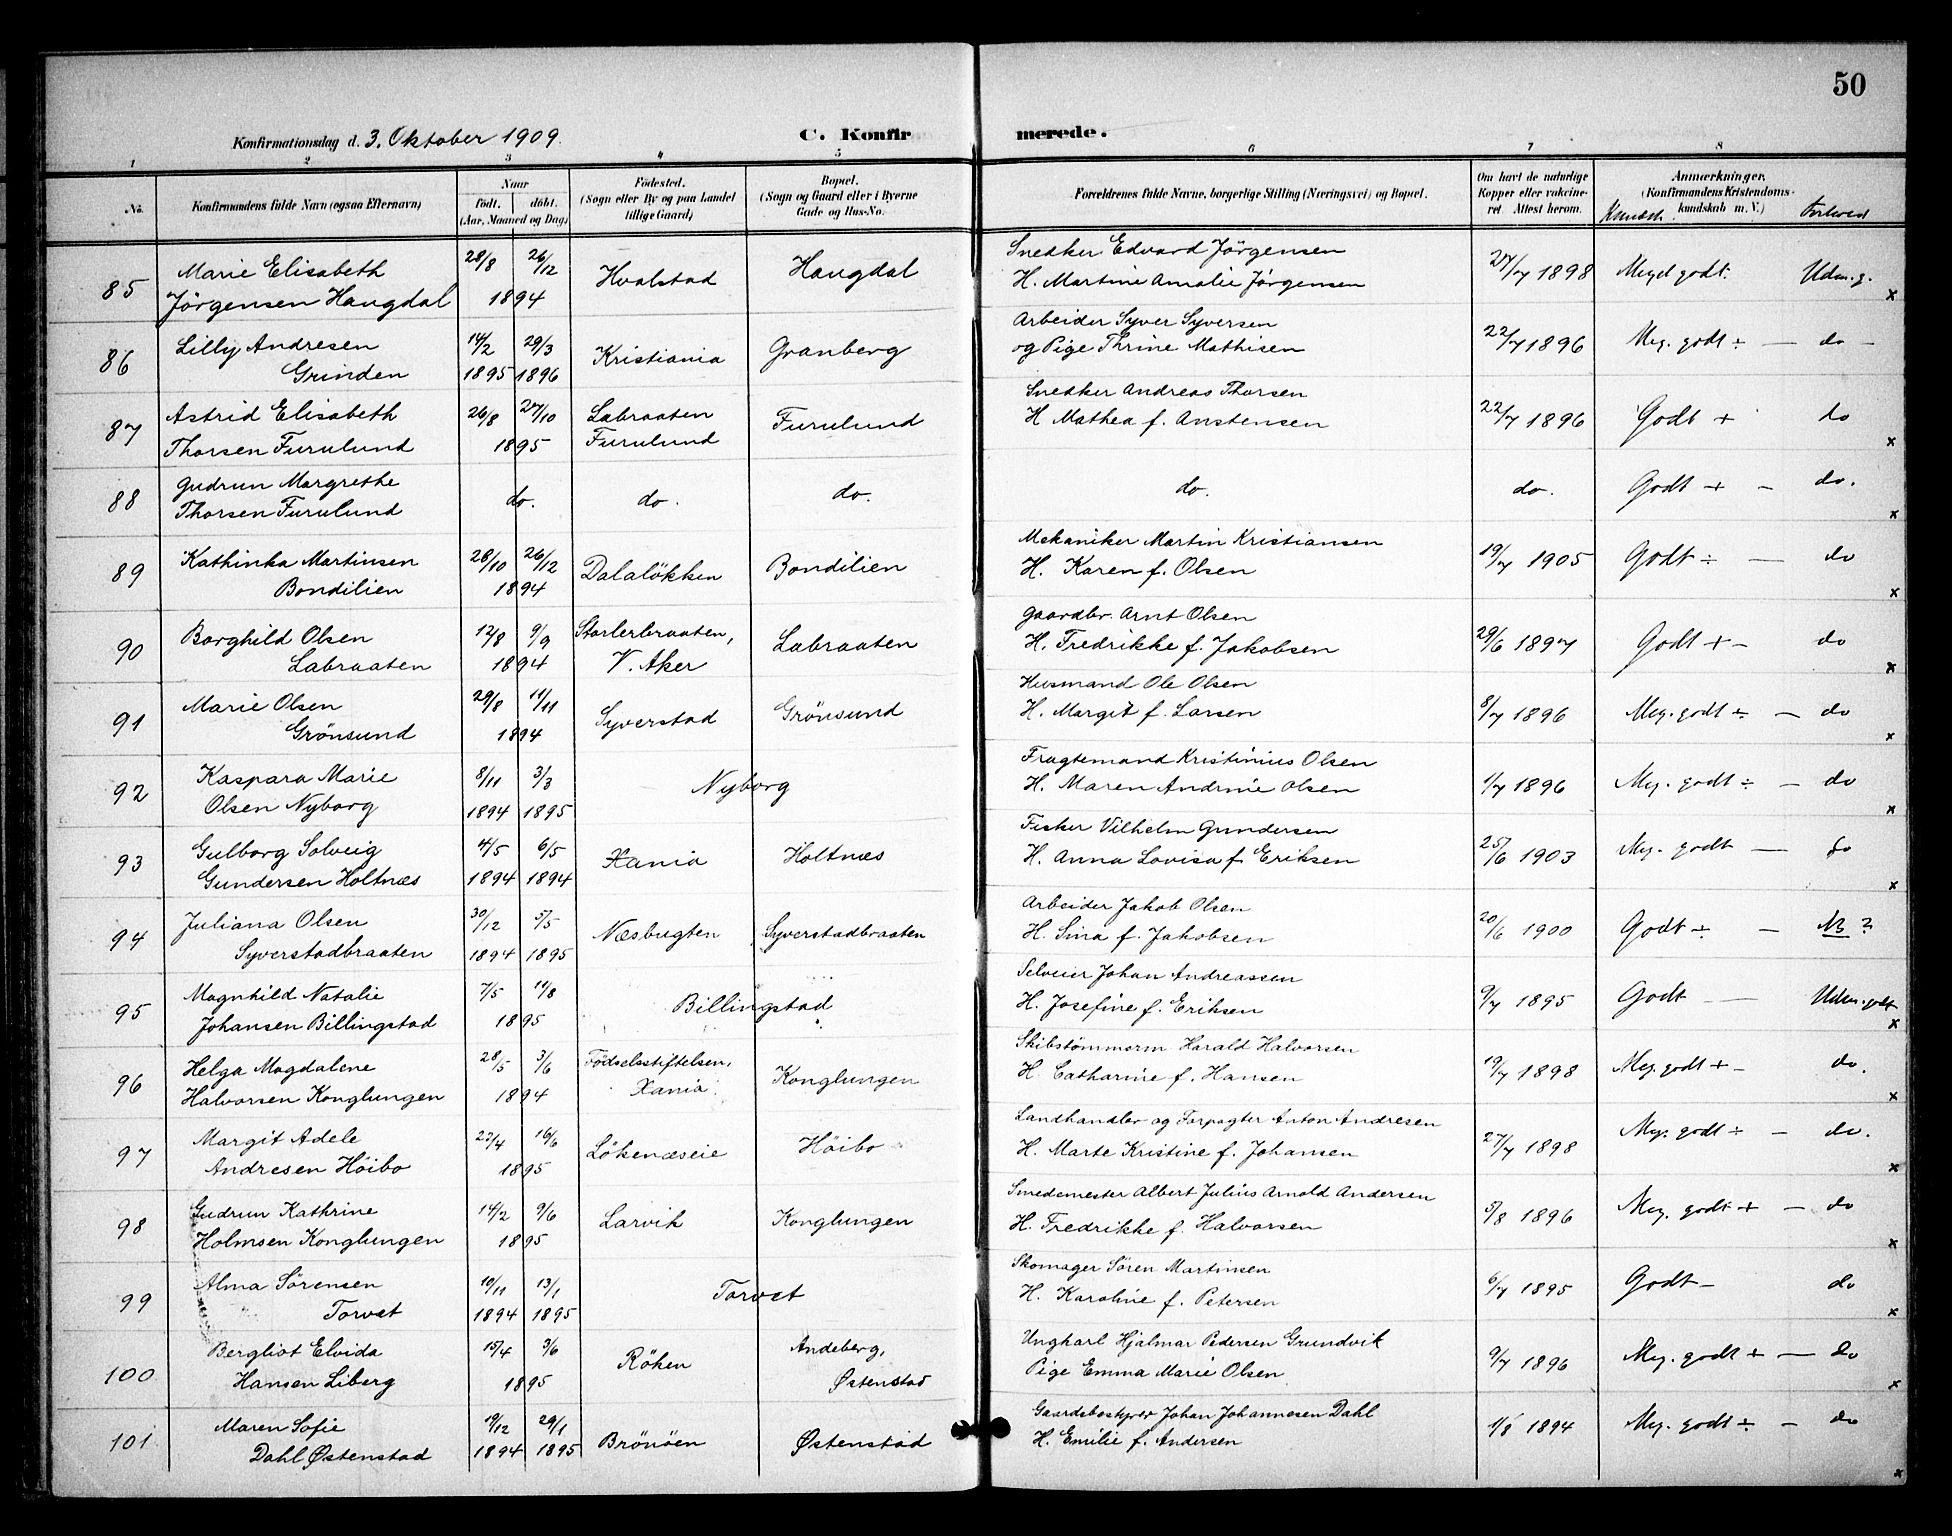 50
Konfirmationsdag d. 3. Oktober 1909.
C. Konfirmerede.
1 2 3 4 5 6 7 8
No. Konfirmandens fulde Navn (ogsaa Efternavn) Naar födt. döbt. (Aar, Maaned og Dag) Födested. (Sogn eller By og paa Landet tillige Gaard) Bopæl. (Sogn og Gaard eller i Byerne Gade og Hus-No. Forældrenes fulde Navne, borgerlige Stilling (Næringsvei) og Bopæl. Om havt de naturlige Kopper eller vakcineret. Attest herom. Anmærkninger. (Konfirmandens Kristendomskundskab m. V.) Kundsk. Forhold
Marie Elisabeth 28/8 26/12 Snedker Edvard Jörgensen
85 Jörgensen Haugdal 1894 Hvalstad Haugdal H. Martine Amalie Jörgensen 27/7 1898 Meget godt. Udm. g. x
Lilly Andresen 14/2 29/3 Arbeider Syver Syversen
86 Grinden 1895 1896 Kristiania Granberg og Pige Thrine Mathisen 22/7 1896 Meg. godt ÷ — do —
Astrid Elisabeth 26/8 27/10 Labraaten Snedker Andreas Thorsen
87 Thorsen Furulund 1895 Furulund Furulund H Mathea f. Anstensen 22/7 1896 Godt + do x
Gudrun Margrethe
88 Thorsen Furulund do. do. do. do. do. Godt + - do. x
Kathinka Martinsen 28/10 26/12 Mekaniker Martin Kristiansen
89 Bondilien 1894 Dalalökken Bondilien H. Karen f. Olsen 19/7 1905 Godt ÷ — do x
Borghild Olsen 12/8 9/9 Gaardbr. Arnt Olsen
90 Labraaten 1894 V. Aker Labraaten H. Fredrikke f. Jakobsen 29/6 1897 Godt + - do x
Marie Olsen 29/8 11/11 Husmand Ole Olsen
91 Grönsund 1894 Syverstad Grönsund H. Margit f. Larsen 8/7 1896 Meg. godt ÷ — do x
Kaspara Marie 8/11 3/3 Fragtemand Kristinius Olsen
92 Olsen Nyborg 1894 1895 Nyborg H. Maren Andrine Olsen 1/7 1896 Meg. godt ÷ — do x
Gulborg Solveig 4/5 6/5 Fisker Vilhelm Gundersen
93 Gundersen Holtnæs 1894 1894 Xania Holtnæs H. Anna Lovisa f. Eriksen 25/6 1903 Meg. godt — do x
Juliana Olsen 30/12 5/5 Arbeider Jakob Olsen
94 Syverstadbraaten 1894 1895 Næsbugten Syverstadbraaten H. Sina f. Jakobsen 20/6 1900 Godt ÷ —
Magnhild Natalie 7/5 11/8 Selveier Johan Andreassen
95 Johansen Billingstad 1895 Billingstad H. Josefine f. Eriksen 9/7 1895 Godt — Udm. godt x
Helga Magdalene 28/5 3/6 Födselsstiftelsen, Skibstömmerm Harald Halvorsen
96 Halvorsen Konglungen 1894 Xania Konglungen H. Catharine f. Hansen 19/7 1898 Meg. godt + - do. x
Margit Adele 22/4 16/6 Landhandler og Forpagter Anton Andresen
97 Andresen Höibo 1895 Lökenæseie Höibo H. Marte Kristine f. Johansen 27/7 1898 Meg. godt ÷ — do. x
Gudrun Kathrine 14/2 9/6 Smedemester Albert Julius Arnold Andersen
98 Holmsen Konglungen 1895 Larvik Konglungen H. Fredrikke f. Halvorsen 5/8 1896 Meg. godt + - do x
Alma Sörensen 10/11 13/1 Skomager Sören Martinsen
99 Torvet 1894 1895 Torvet H. Karoline f. Petersen 6/7 1895 Godt — do x
Bergliot Elvida 15/4 3/6 Andeberg, Ungkarl Hjalmar Pedersen Grundvik
100 Hansen Liberg 1895 Röken Østenstad Pige Emma Marie Olsen 9/7 1896 Meg. godt + — do x
Maren Sofie 19/12 29/1 Gaardsbestyrer Johan Johannesen Dahl
101 Dahl Østenstad 1894 1895 Brönöen Østenstad H. Emilie f. Andersen 1/8 1894 Meg. godt ÷ - do x